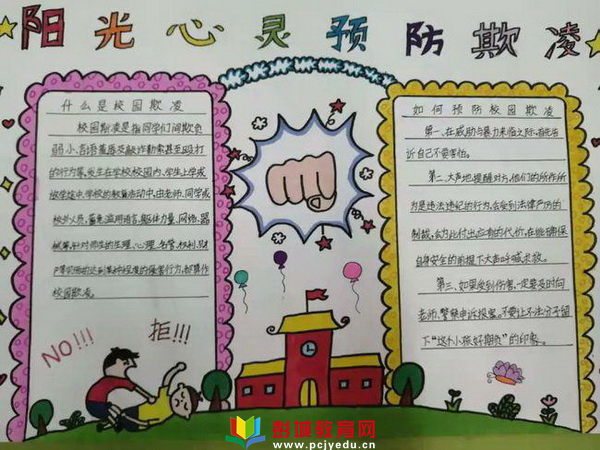 阳光心灵预防欺凌
什么是校园欺凌
校园欺凌是指同学们间欺负
弱小、言语羞辱及敲诈勒索甚至殴打
的行为等,发生在学校校园内、学生上学或
放学途中,学校的教育活动中,由老师、同学或
校外人员,蓄意滥用语言、躯体力量、网络、器
械等,针对师生的生理、心理、名誉、权利、财
产等实施的达到某种程度的侵害行为,都算作
校园欺凌。
NO!!!
拒!!!
如何预防校园欺凌
第一、在威胁与暴力来临之际,首先告
诉自己不要害怕。
第二、大声地提醒对方,他们的所作所
为是违法违纪的行为,会受到法律严厉的
制裁,会为此付出应有的代价,在能确保
自身安全的前提下大声呼喊求救。
第三、如果受到伤害,一定要及时向
老师、警察申诉报案。不要让不法分子留
下"这个小孩好欺负"的印象。
彭城教育网
www.pcjyedu.cn